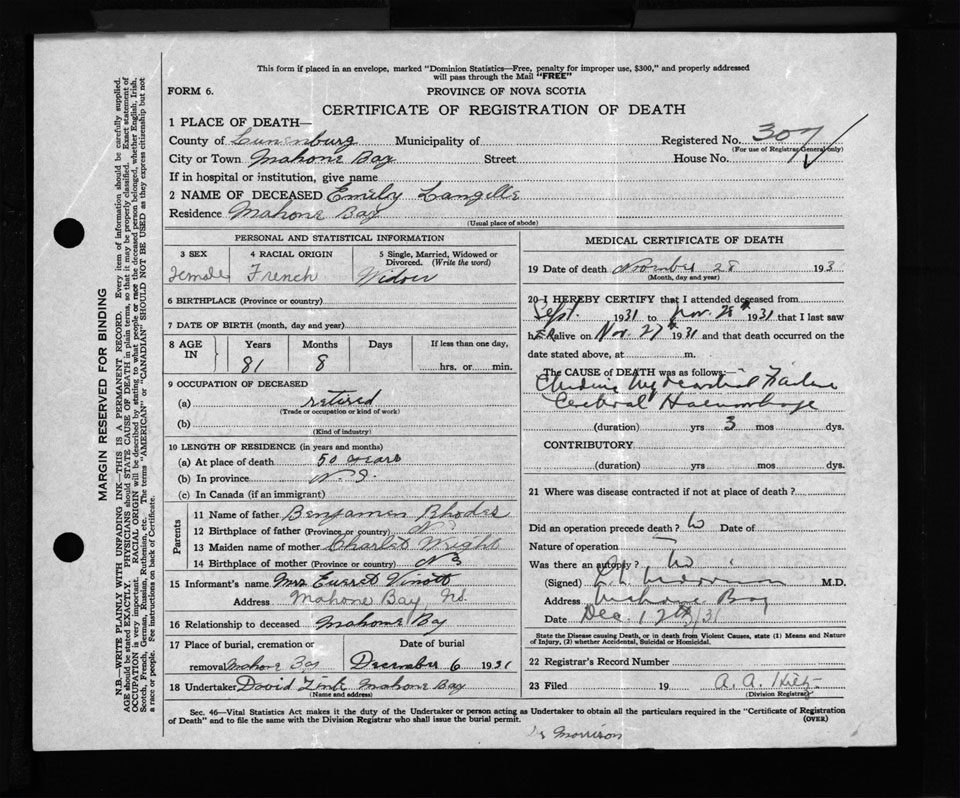 This form if placed in an envelope, marked "Dominion Statistics—Free, penalty for improper use, $300," and properly addressed
will pass through the Mail "FREE"
FORM 6.
PROVINCE OF NOVA SCOTIA
CERTIFICATE OF REGISTRATION OF DEATH
1 PLACE OF DEATH—
County of Lunenburg Municipality of
Registered No. 307
(For use of Registrar General only)
City or Town Mahone Bay Street House No.
If in hospital or institution, give name
2 NAME OF DECEASED Emily Langille
Residence Mahone Bay
(Usual place of abode)
PERSONAL AND STATISTICAL INFORMATION
3 SEX 4 RACIAL ORIGIN 5 Single, Married, Widowed or
Divorced. (Write the word)
Female French Widow
6 BIRTHPLACE (Province or country)
7 DATE OF BIRTH (month, day and year)
8 AGE IN Years Months Days If less than one day,
81 8 hrs. or min.
9 OCCUPATION OF DECEASED
(a) retired
(Trade or occupation or kind of work)
(b)
(Kind of industry)
10 LENGTH OF RESIDENCE (in years and months)
(a) At place of death 50 years
(b) In province N.S.
(c) In Canada (if an immigrant)
Parents
11 Name of father Benjamen Rhodes
12 Birthplace of father (Province or country) N S
13 Maiden name of mother Wright
14 Birthplace of mother (Province or country) NS
15 Informant's name Mrs Everet
Address Mahone Bay, N.S.
16 Relationship to deceased Mahone Bay
17 Place of burial, cremation or Date of burial
removal Mahone Bay December 6 1931
18 Undertaker David Zink Mahone Bay
(Name and address)
MEDICAL CERTIFICATE OF DEATH
19 Date of death November 28 193
(Month, day and year)
20 I HEREBY CERTIFY that I attended deceased from
Sept. 1931 to Nov. 28th 1931 that I last saw
hER alive on Nov. 27th 1931 and that death occurred on the
date stated above, at m.
The CAUSE of DEATH was as follows:—
Myocardial Failure
Cerebral Haemorrhage
(duration) yrs 3 mos dys.
CONTRIBUTORY
(duration) yrs mos dys.
21 Where was disease contracted if not at place of death?
Did an operation precede death? No Date of
Nature of operation
Was there an autopsy? No
(Signed) Morrison M.D.
Address Mahone Bay
Date Dec. 12th/31
State the Disease causing Death, or in death from Violent Causes, state (1) Means and Nature
of Injury, (2) whether Accidental, Suicidal or Homicidal.
22 Registrar's Record Number
23 Filed 19 A. A.
(Division Registrar)
Sec. 46—Vital Statistics Act makes it the duty of the Undertaker or person acting as Undertaker to obtain all the particulars required in the "Certificate of Registration
of Death" and to file the same with the Division Registrar who shall issue the burial permit. (OVER)
Morrison
MARGIN RESERVED FOR BINDING
N.B.—WRITE PLAINLY WITH UNFADING INK—THIS IS A PERMANENT RECORD. Every item of information should be carefully supplied.
AGE should be stated EXACTLY. PHYSICIANS should STATE CAUSE OF DEATH in plain terms, so that it may be properly classified. Exact statement of
OCCUPATION is very important. RACIAL ORIGIN will be described by stating to what people or race the deceased person belonged, whether English, Irish,
Scotch, French, German, Russian, Ruthenian, etc. The terms "AMERICAN" or "CANADIAN" SHOULD NOT BE USED as they express citizenship but not
a race or people. See instructions on back of Certificate.